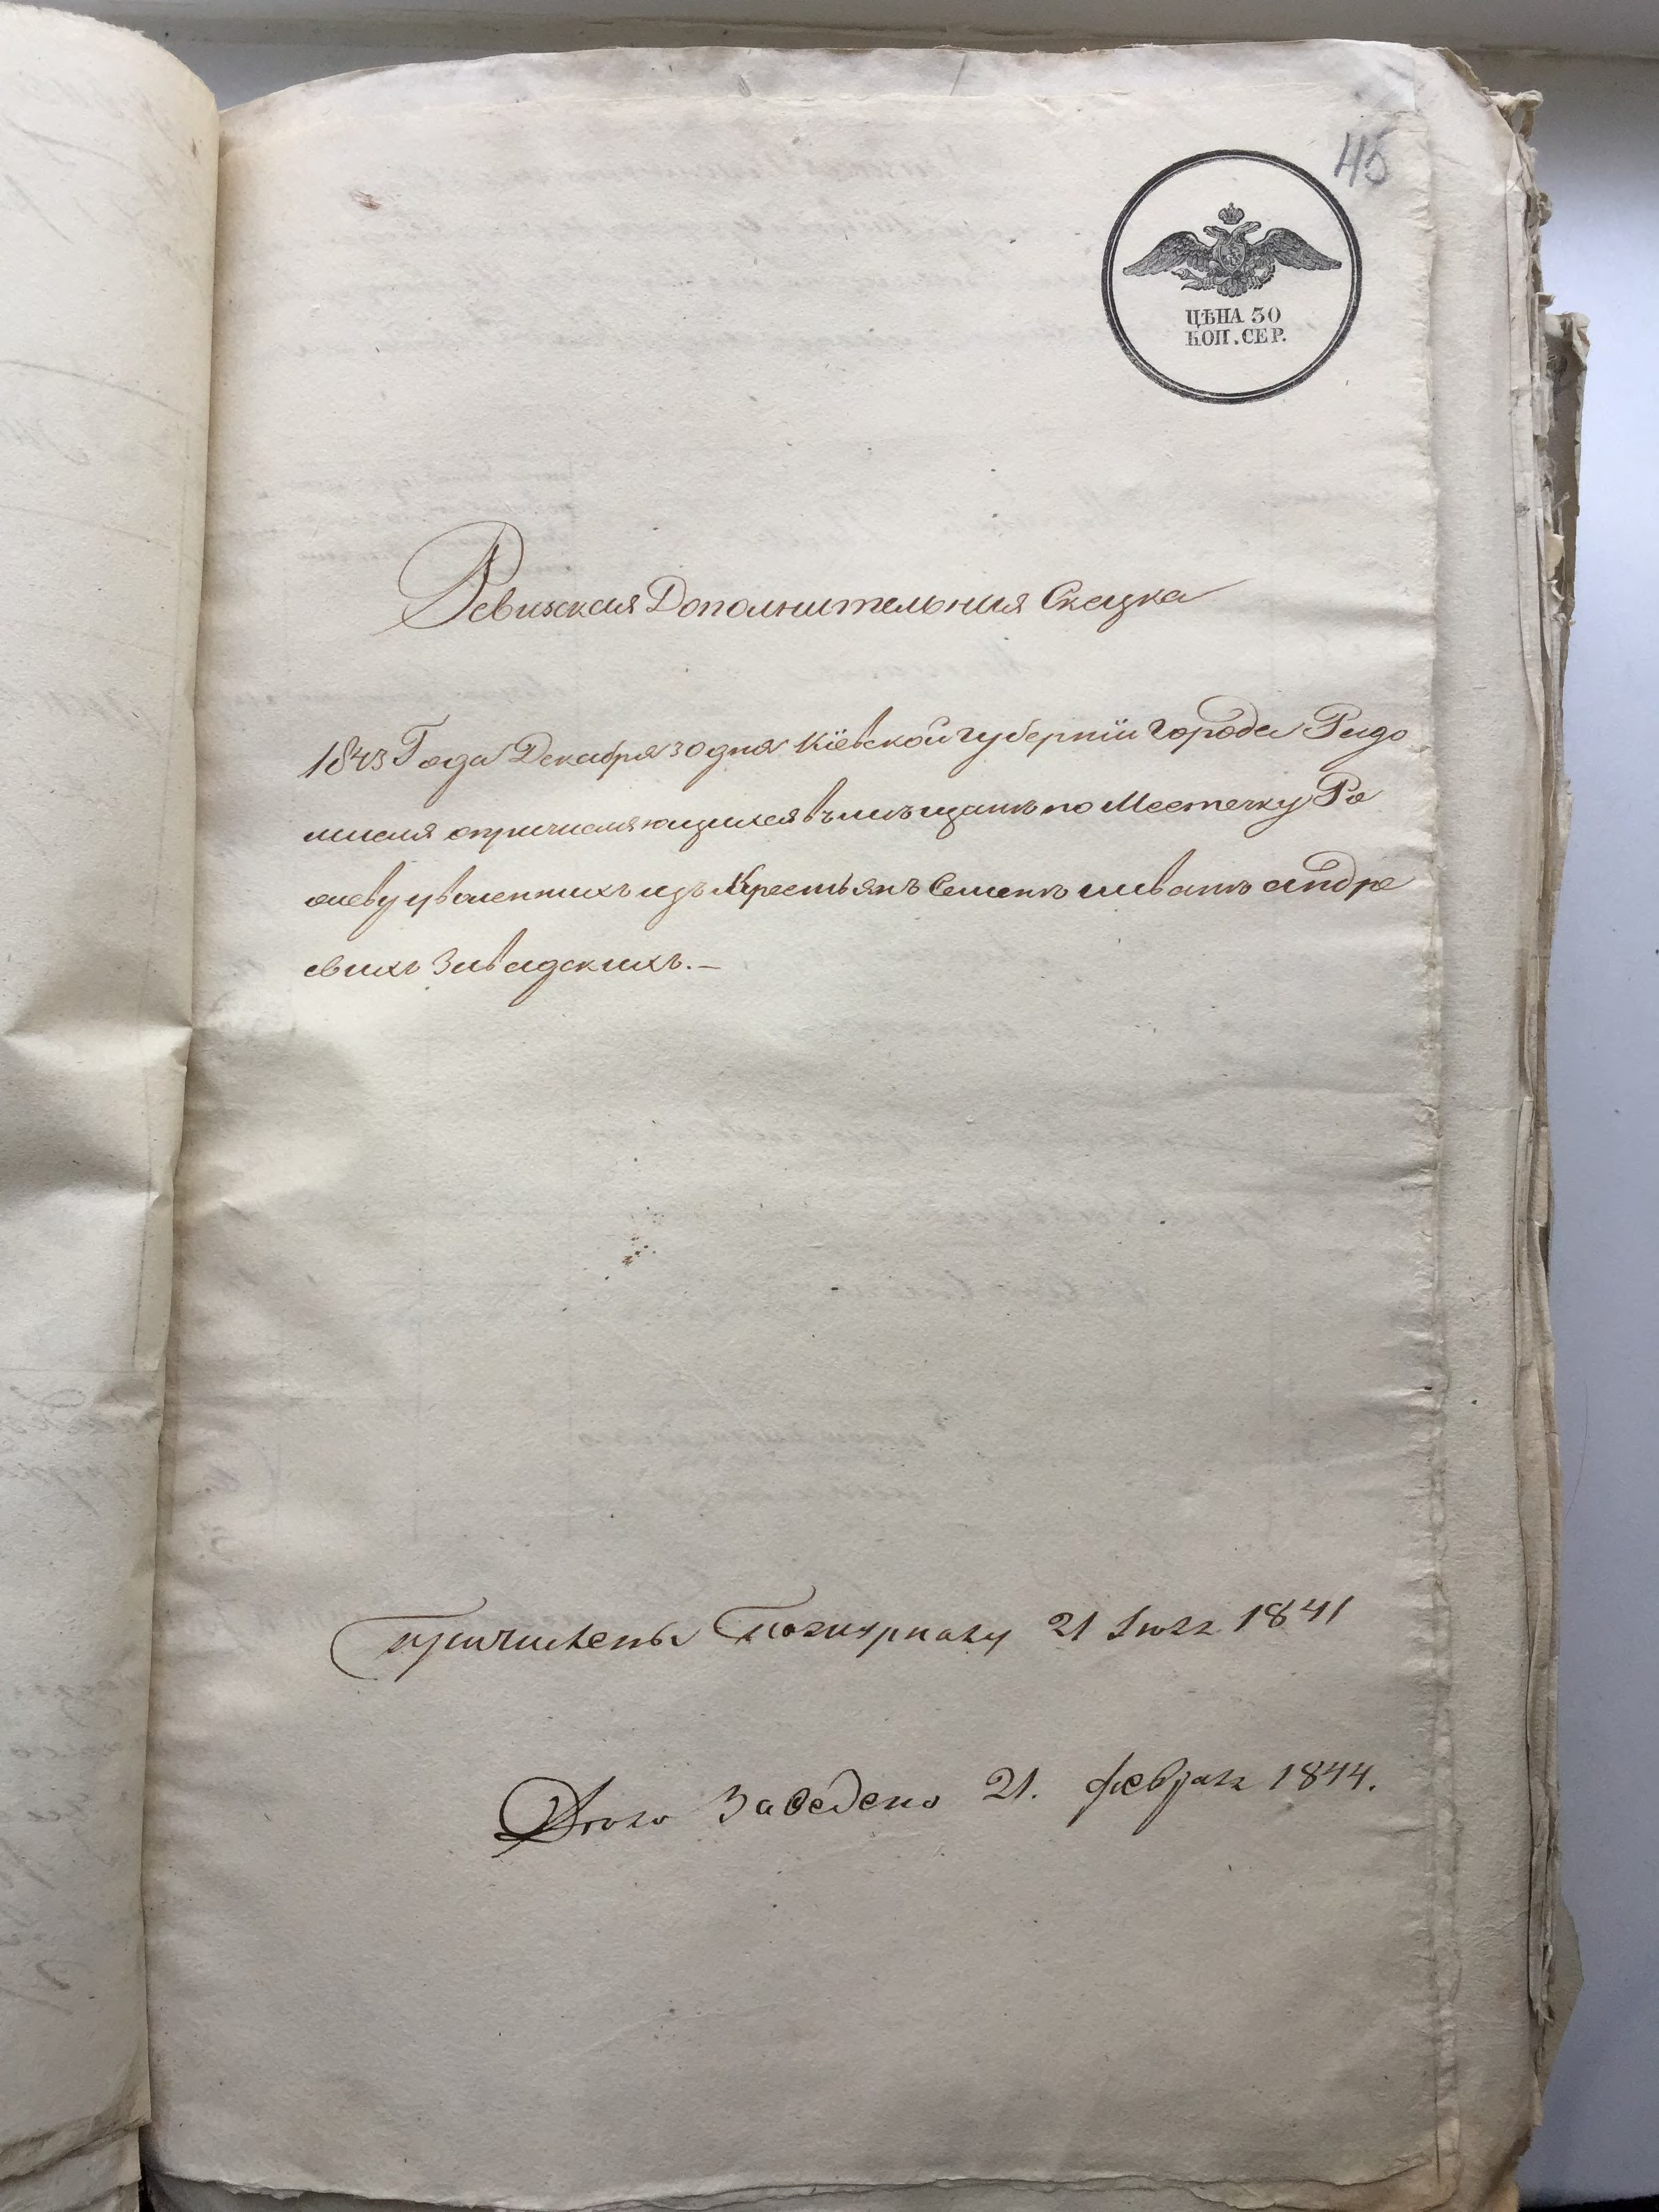 45
ЦѢНА 30
КОП. СЕР.
Ревизская Дополнительная Сказка
1843 Года Декабря 30 дня Кіевской губерніи города Радо
мысля о причисляющихся въ мѣщанѣ по Местечку
изъ Крестьянъ Семенъ Иванъ Андре
евыхъ Завадскихъ.—
Причислены 21 Іюля 1841
Дѣло Заведено 21. Февраля 1844.